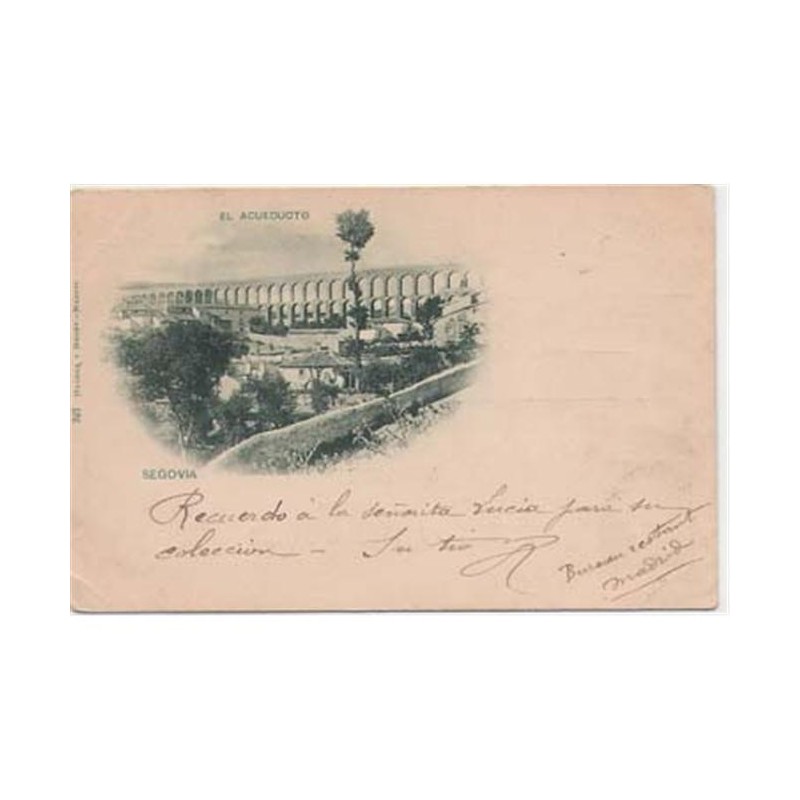 EL ACUEDUCTO
SEGOVIA
Recuerdo á la señorita Lucia para su
colección – Su tio R
Bureau restant
Madrid